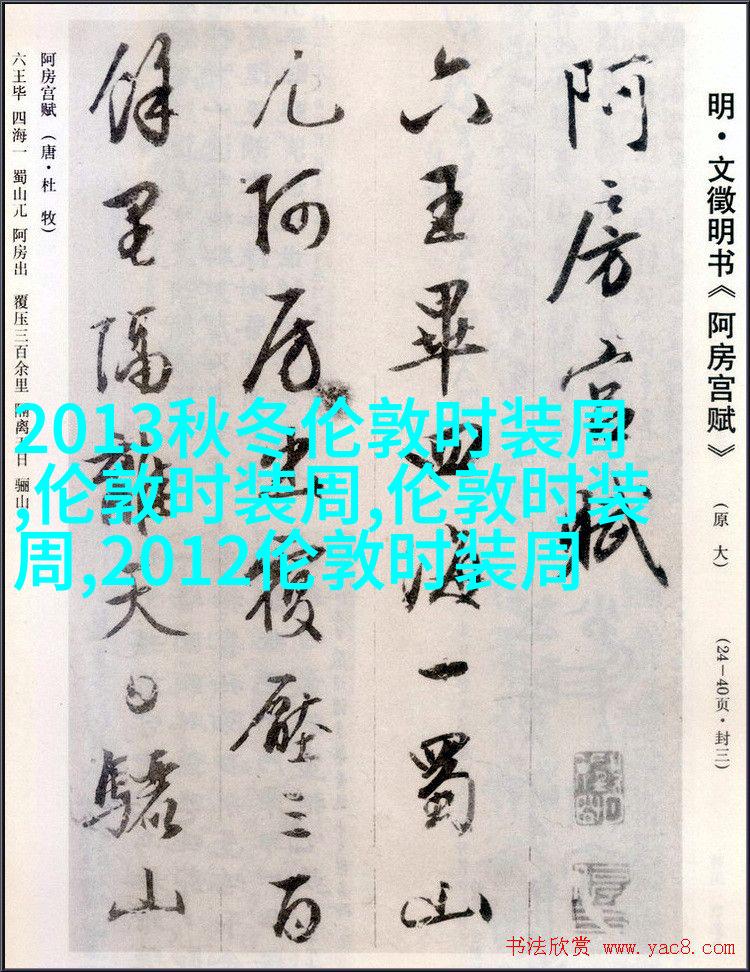 明·文徵明书《阿房宫赋》 (原大) (24—40页·封三)
阿房宫赋
六王畢四海一蜀山
兀阿房出覆壓三百
餘里隔離天日驪山
阿房宫赋(唐·杜 牧)
六王毕 四海一 蜀山兀 阿房出 覆压三百余里 隔离天日 骊山
2013秋冬伦敦时装周
,伦敦时装周,伦敦时装
周,2012伦敦时装周
书法欣赏 www.yac8.com